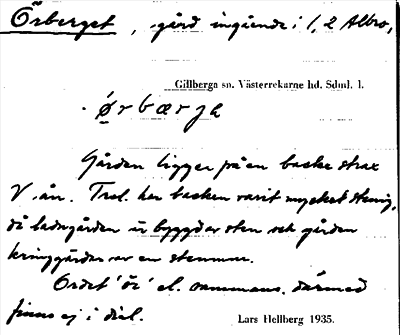 Örberget, gård ingående i 1, 2 Albro,
Gillberga sn. Västerrekarne hd. Sdml. l.
Ørbærjə
Gården ligger på en backe strax
V. ån. Trol. har backen varit mycket stenig,
då ladugården är byggd av sten och gården
kringgärdas av en stenmur.
Ordet 'ör' el. sammans. därmed
finns ej i dial.
Lars Hellberg 1935.